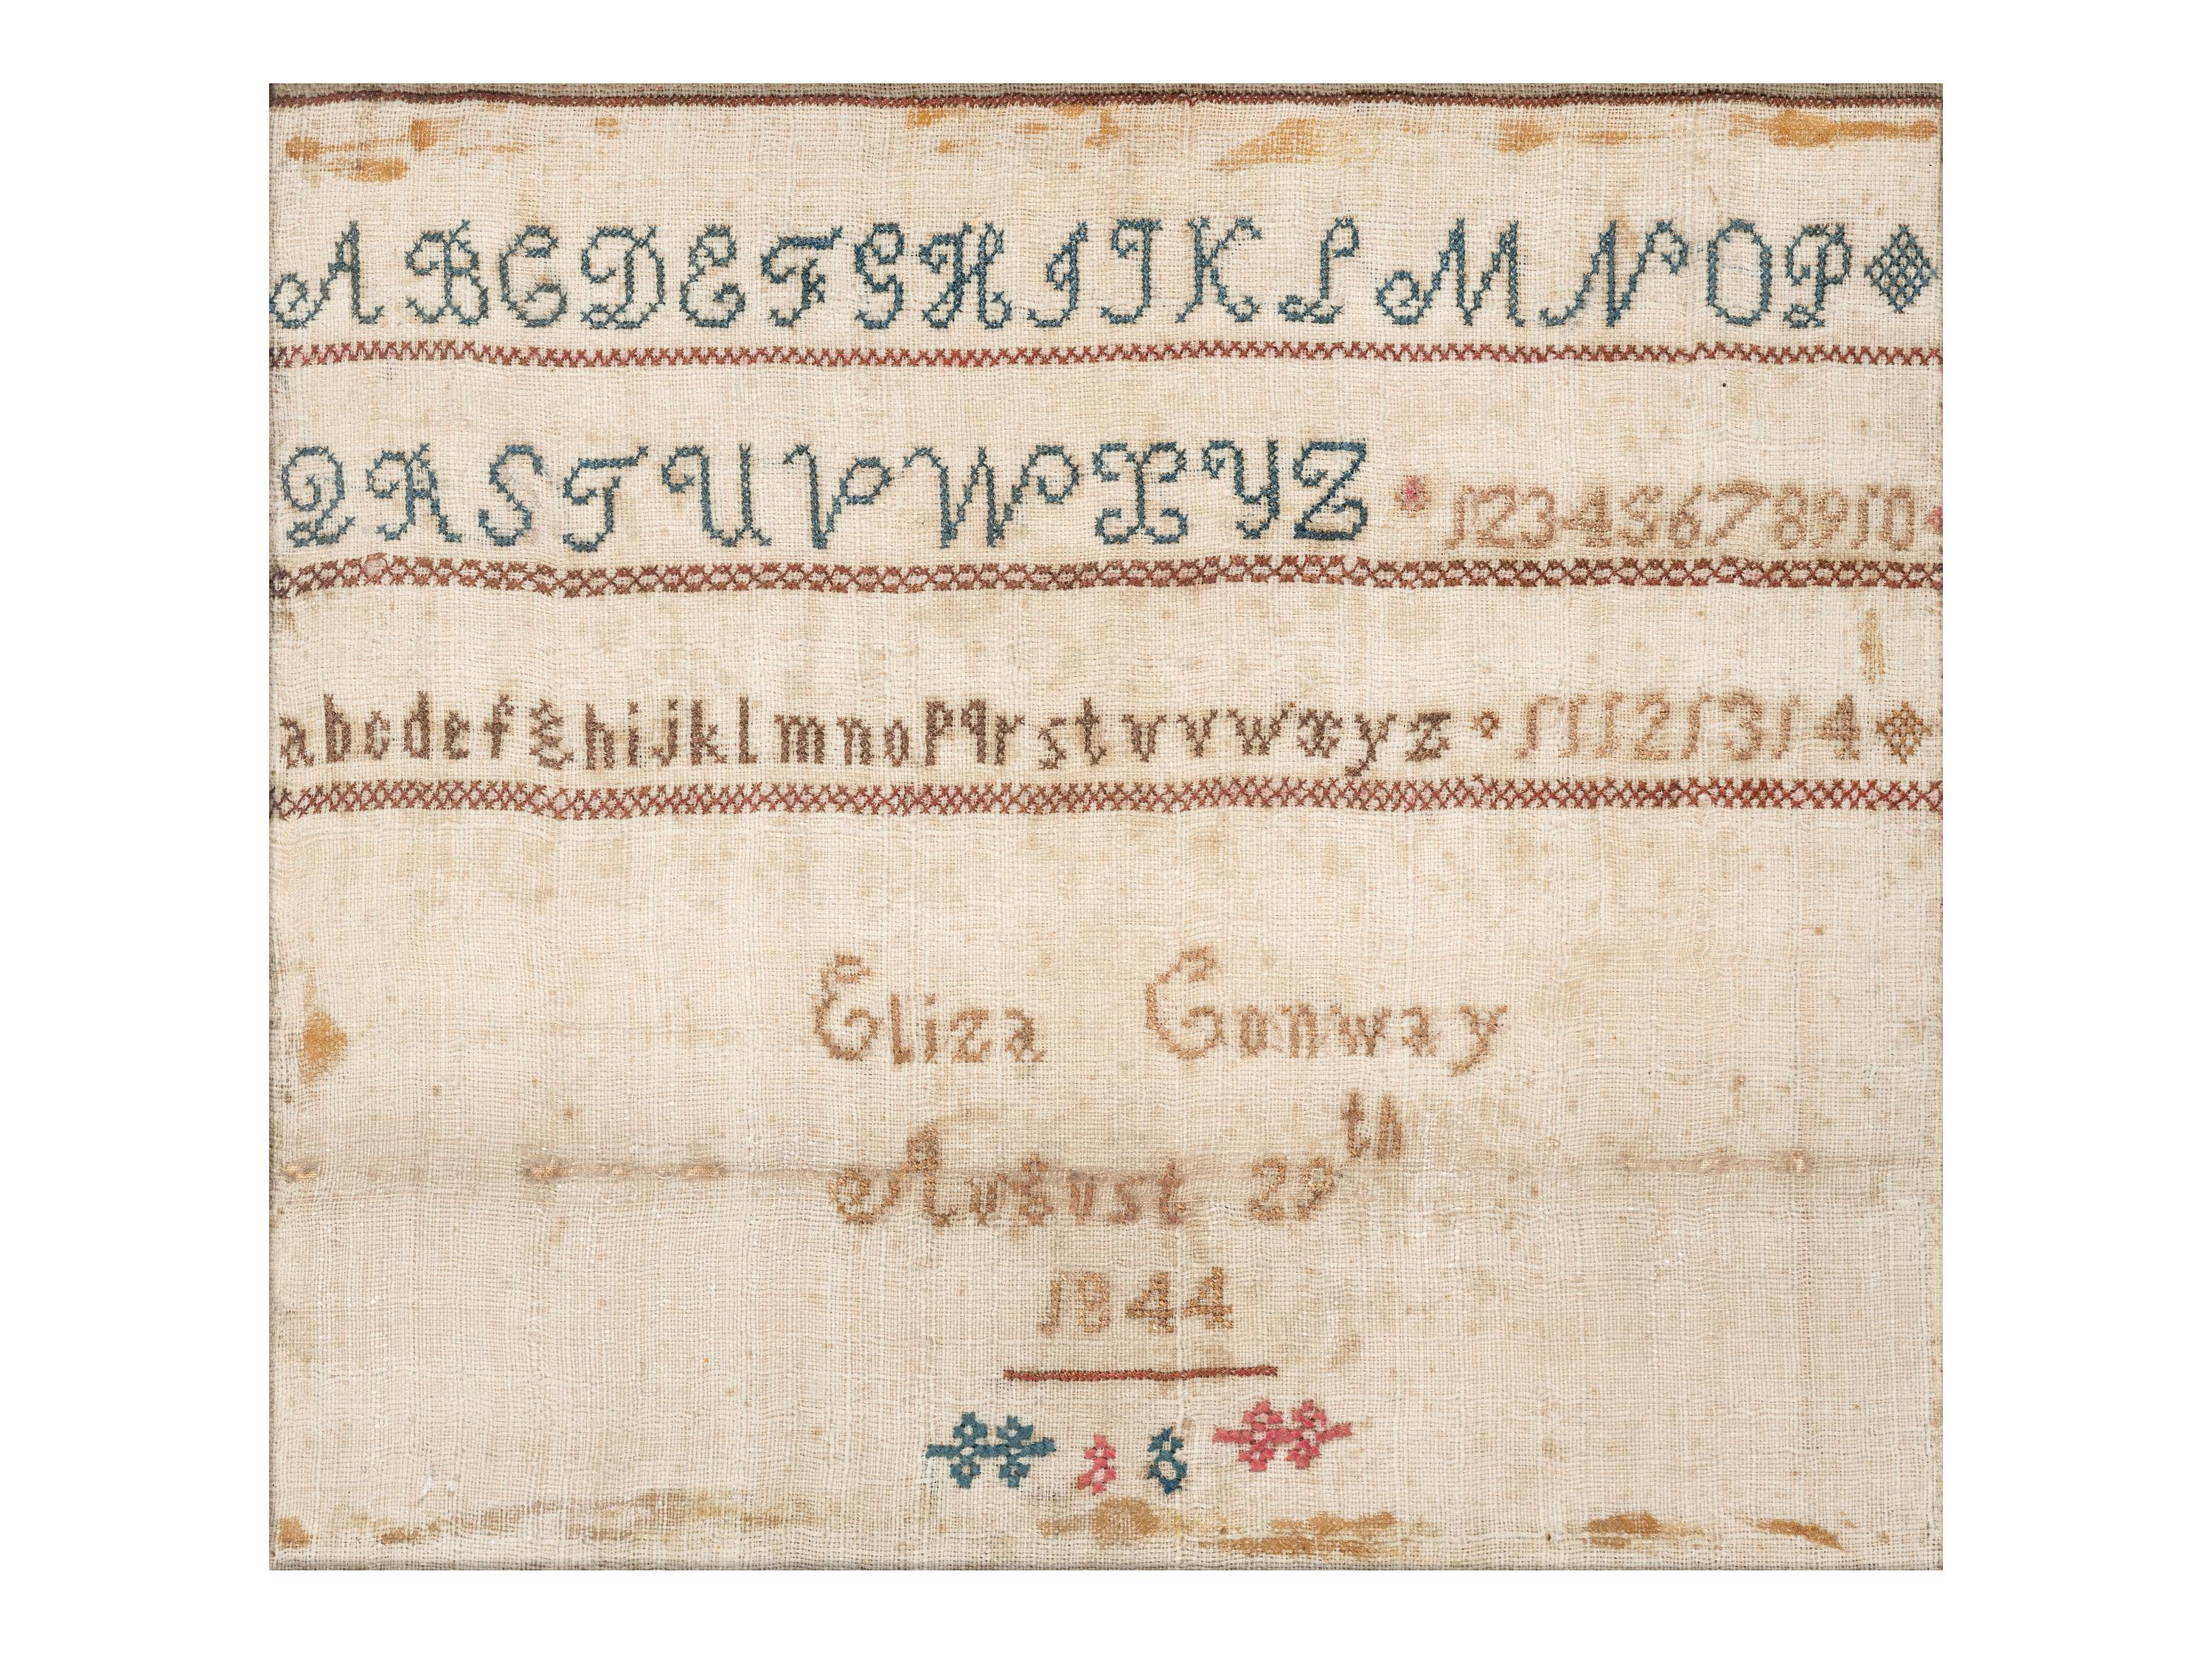 A B C D E F G H I J K L M N O P
Q R S T U V W X Y Z 1 2 3 4 5 6 7 8 9 10
a b c d e f g h i j k l m n o p q r s t v v w x y z 11 12 13 14
Eliza Conway
August 29th
1844